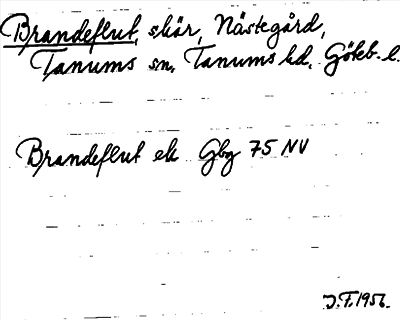 Brandeflut, skär, Nästegård,
Tanums sn, Tanums hd, Göteb. l.
Brandeflut ek Gbg 75 NV
J.F. 1956.